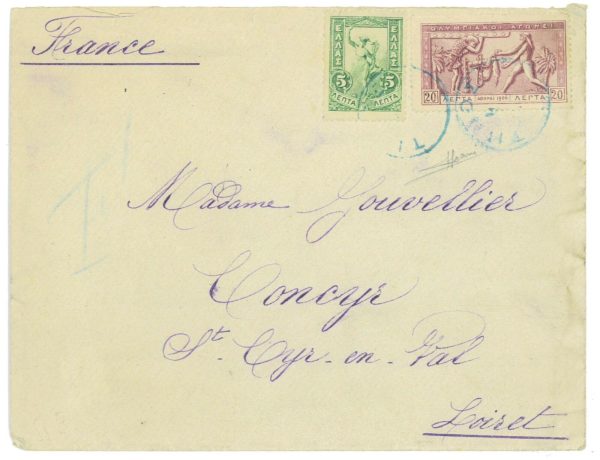 France
ΕΛΛΑΣ ΕΛΛΑΣ
5 5
ΛΕΠΤΑ ΛΕΠΤΑ
ΟΛΥΜΠΙΑΚΟΙ ΑΓΩΝΕΣ
20 ΛΕΠΤΑ ΑΘΗΝΑΙ 1906 ΛΕΠΤΑ 20
T
Madame Gouvellier
Concyr
St. Cyr-en-Val
Loiret